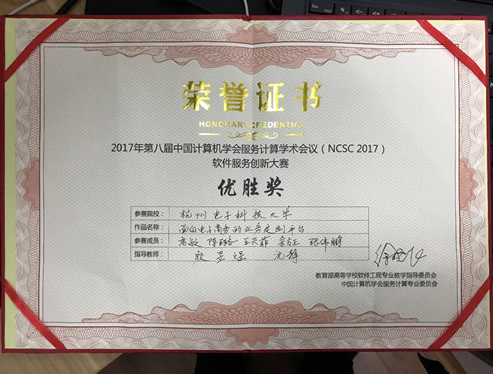 荣誉证书
HONORARY CREDENTIAL
2017年第八届中国计算机学会服务计算学术会议（NCSC 2017）
软件服务创新大赛
优胜奖
参赛院校： 杭州电子科技大学
作品名称： 面向电子商务的业务规则平台
参赛成员：
指导教师：
教育部高等学校软件工程专业教学指导委员会
中国计算机学会服务计算专业委员会